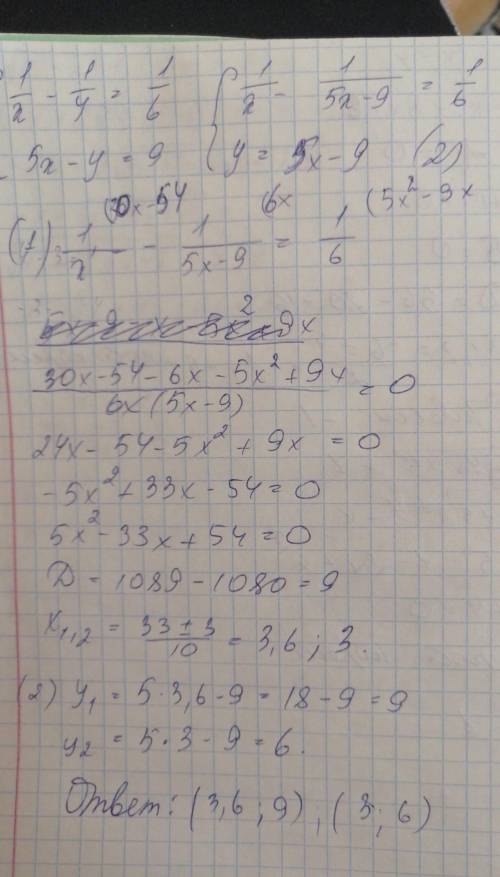 1/x - 1/y = 1/6 { 1/x - 1/(5x-9) = 1/6
5x - y = 9 y = 5x - 9 (2)
(30x-54 (6x (5x² - 9x
(1): 1/x - 1/(5x-9) = 1/6
(30x - 54 - 6x - 5x² + 9x)/(6x(5x-9)) = 0
24x - 54 - 5x² + 9x = 0
-5x² + 33x - 54 = 0
5x² - 33x + 54 = 0
D = 1089 - 1080 = 9
x₁,₂ = (33 ± 3)/10 = 3,6 ; 3.
(2) y₁ = 5·3,6 - 9 = 18 - 9 = 9
y₂ = 5·3 - 9 = 6.
Ответ: (3,6 ; 9), (3 ; 6)